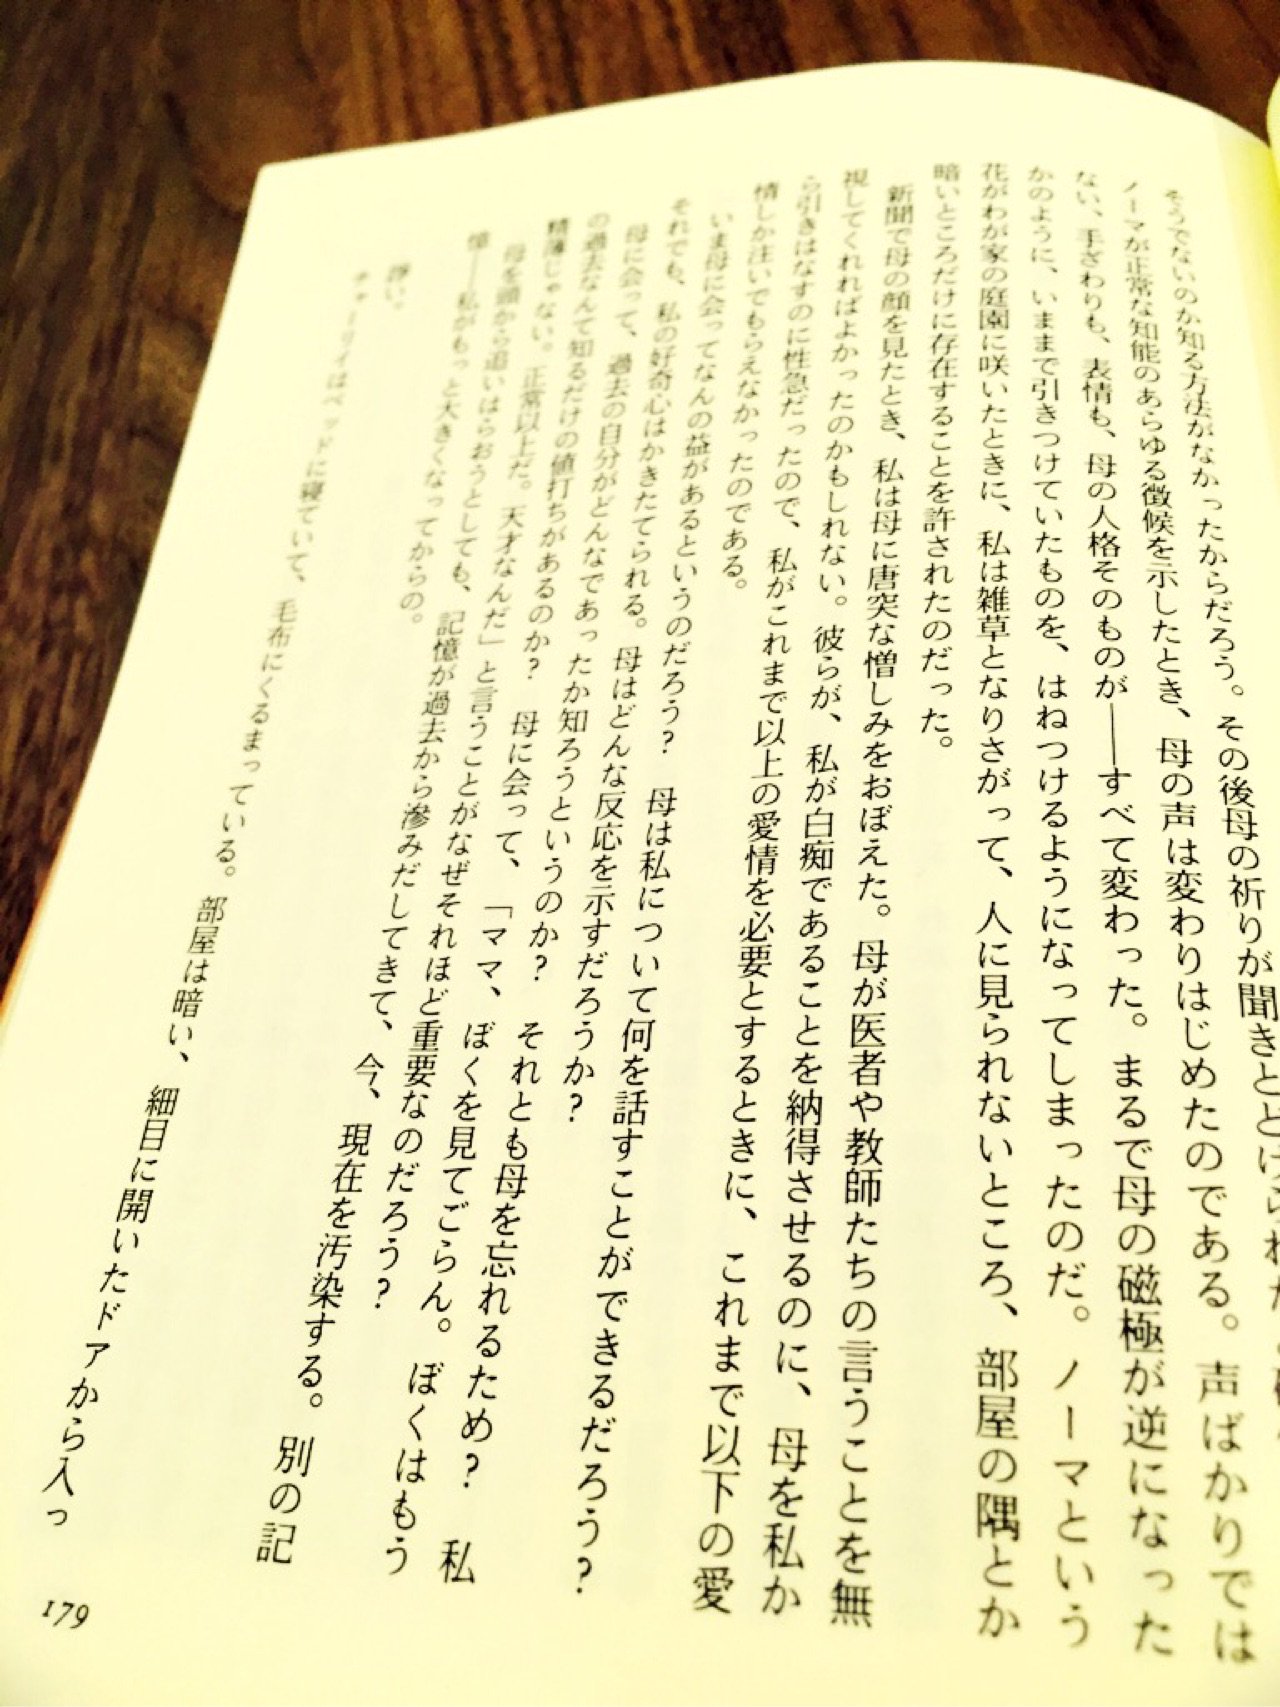 そうでないのか知る方法がなかったからだろう。その後母の祈りが聞きとどけられた
ノーマが正常な知能のあらゆる徴候を示したとき、母の声は変わりはじめたのである。声ばかりでは
ない、手ざわりも、表情も、母の人格そのものが――すべて変わった。まるで母の磁極が逆になった
かのように、いままで引きつけていたものを、はねつけるようになってしまったのだ。ノーマという
花がわが家の庭園に咲いたときに、私は雑草となりさがって、人に見られないところ、部屋の隅とか
暗いところだけに存在することを許されたのだった。
新聞で母の顔を見たとき、私は母に唐突な憎しみをおぼえた。母が医者や教師たちの言うことを無
視してくれればよかったのかもしれない。彼らが、私が白痴であることを納得させるのに、母を私か
ら引きはなすのに性急だったので、私がこれまで以上の愛情を必要とするときに、これまで以下の愛
情しか注いでもらえなかったのである。
いま母に会ってなんの益があるというのだろう？　母は私について何を話すことができるだろう？
それでも、私の好奇心はかきたてられる。母はどんな反応を示すだろうか？
母に会って、過去の自分がどんなであったか知ろうというのか？　それとも母を忘れるため？　私
の過去なんて知るだけの値打ちがあるのか？　母に会って、「ママ、ぼくを見てごらん。ぼくはもう
精薄じゃない。正常以上だ。天才なんだ」と言うことがなぜそれほど重要なのだろう？
母を頭から追いはらおうとしても、記憶が過去から滲みだしてきて、今、現在を汚染する。別の記
憶――私がもっと大きくなってからの。
諍い。
チャーリイはベッドに寝ていて、毛布にくるまっている。部屋は暗い、細目に開いたドアから入っ
179